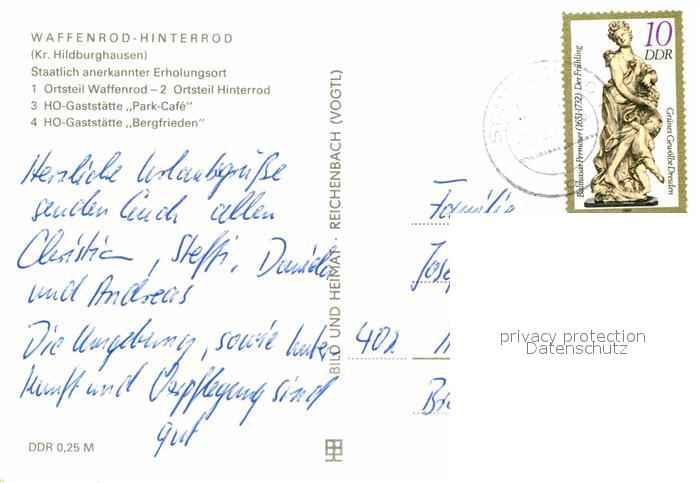 WAFFENROD-HINTERROD
(Kr. Hildburghausen)
Staatlich anerkannter Erholungsort
1 Ortsteil Waffenrod – 2 Ortsteil Hinterrod
3 HO-Gaststätte „Park-Café"
4 HO-Gaststätte „Bergfrieden"
Herzliche Urlaubsgrüße
senden Euch allen
Christin, Steffi, Daniela
und Andreas
Die Umgebung, sowie Unter
kunft und Verpflegung sind
gut
DDR 0,25 M
BILD UND HEIMAT · REICHENBACH (VOGTL)
10
DDR
Balthasar Permoser (1651-1732): Der Frühling
Grünes Gewölbe Dresden
Familie
Jose
402
privacy protection
Datenschutz